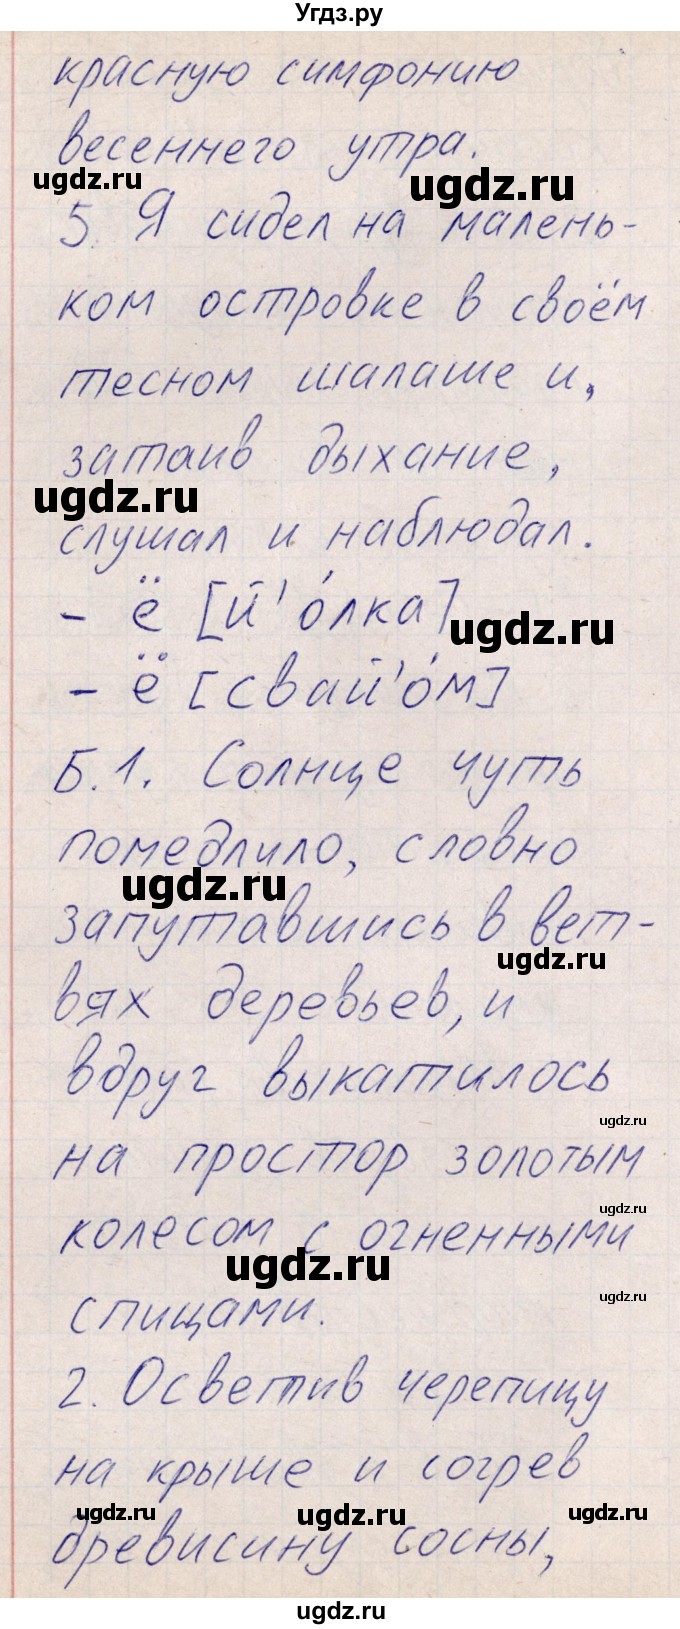 Угдз.ру
красную симфонию
весеннего утра.
ugdz.ru ugdz.ru
5. Я сидел на малень-
ком островке в своём
тесном шалаше и,
затаив дыхание,
ugdz.ru
слушал и наблюдал.
- ё [й'óлка]
ugdz.ru
- ё [свай'óм]
Б.1. Солнце чуть
помедлило, словно
ugdz.ru
запутавшись в вет-
ugdz.ru
вях деревьев, и
вдруг выкатилось
ugdz.ru
на простор золотым
ugdz.ru
колесом с огненными
ugdz.ru
ugdz.ru
спицами.
2. Осветив черепицу
на крыше и согрев
ugdz.ru ugdz.ru ugdz.ru
древисину сосны,
ugdz.ru